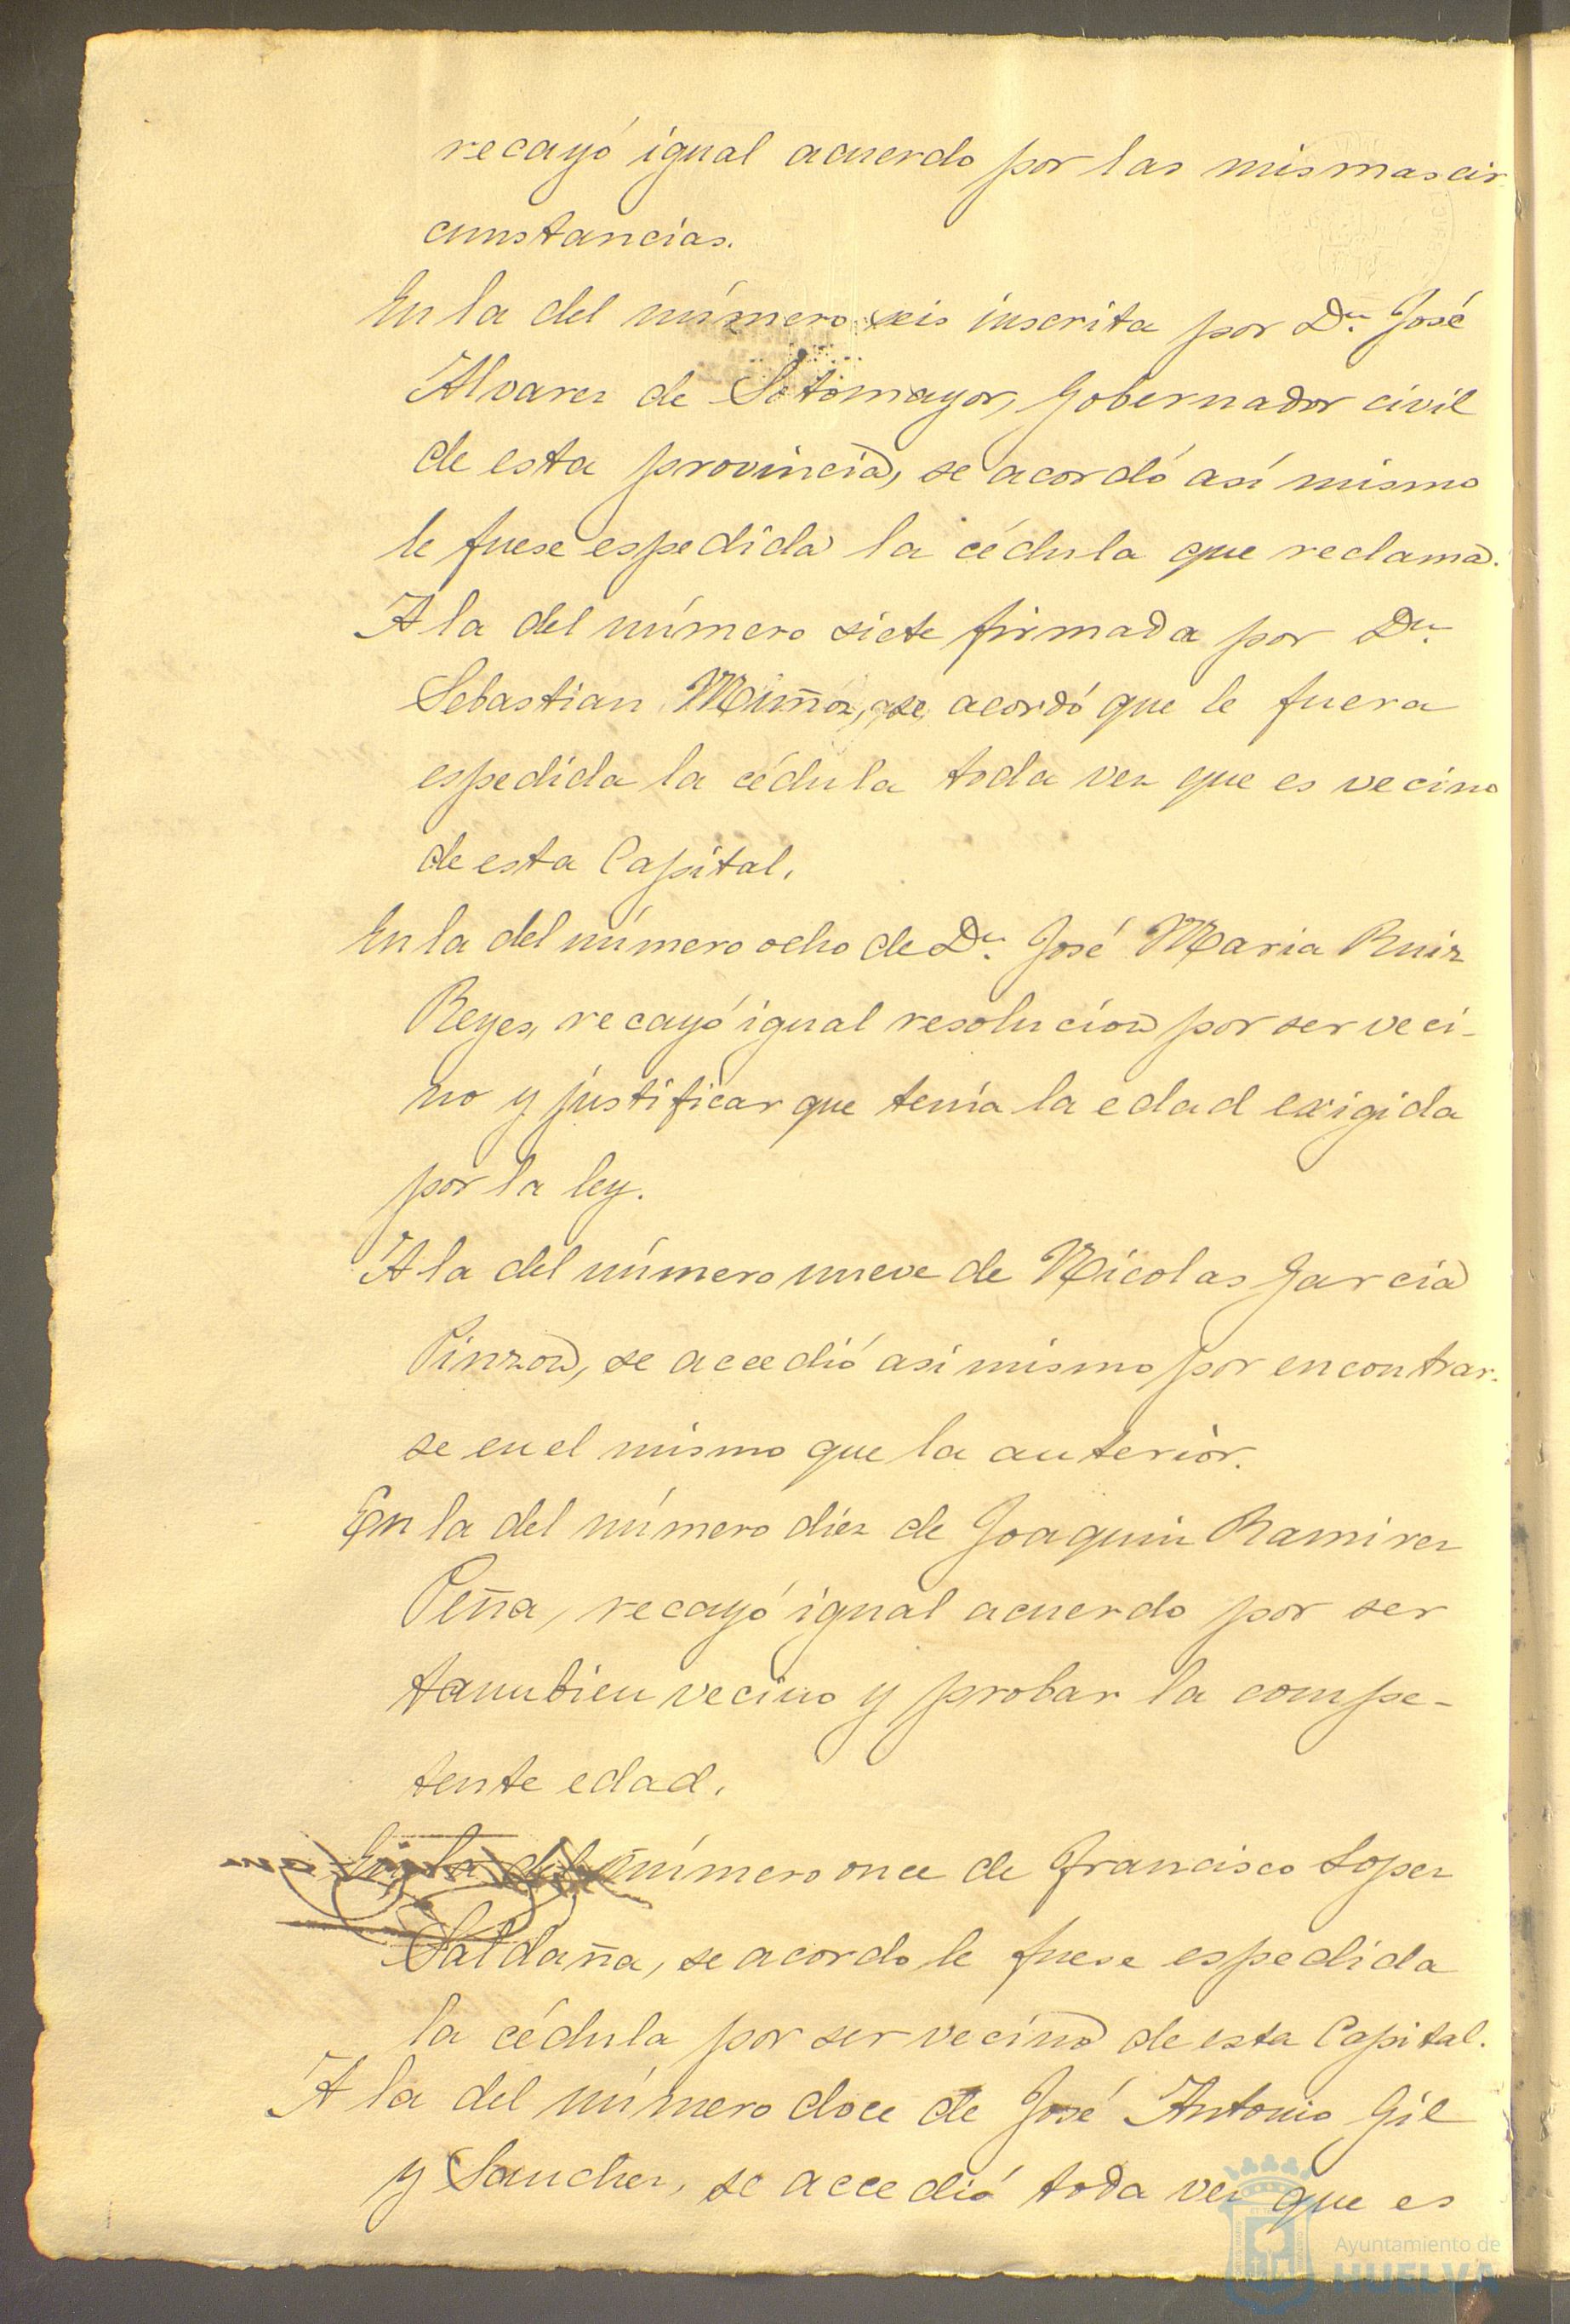 recayó igual acuerdo por las mismas cir
cunstancias.
En la del número seis inscrita por Dn. José
Alvarez de Sotomayor, Gobernador civil
de esta provincia, se acordó asi mismo
le fuese espedida la cédula que reclama.
A la del número siete firmada por Dn.
Sebastian Muñoz, se acordó que le fuera
espedida la cédula toda vez que es vecino
de esta Capital.
En la del número ocho de Dn. José Maria Ruiz
Reyes, recayó igual resolucion por ser veci-
no y justificar que tenía la edad exigida
por la ley.
A la del número nueve de Nicolas Garcia
Pinzon, se accedió asi mismo por encontrar-
se en el mismo que la anterior.
En la del número diez de Joaquin Ramirez
Peña, recayó igual acuerdo por ser
tambien vecino y probar la compe-
tente edad.
En la del número once de Francisco Lopez
Saldaña, se acordo le fuese espedida
la cédula por ser vecino de esta Capital.
A la del número doce de José Antonio Gil
y Sanchez, se accedió toda vez que es
Ayuntamiento de
HUELVA